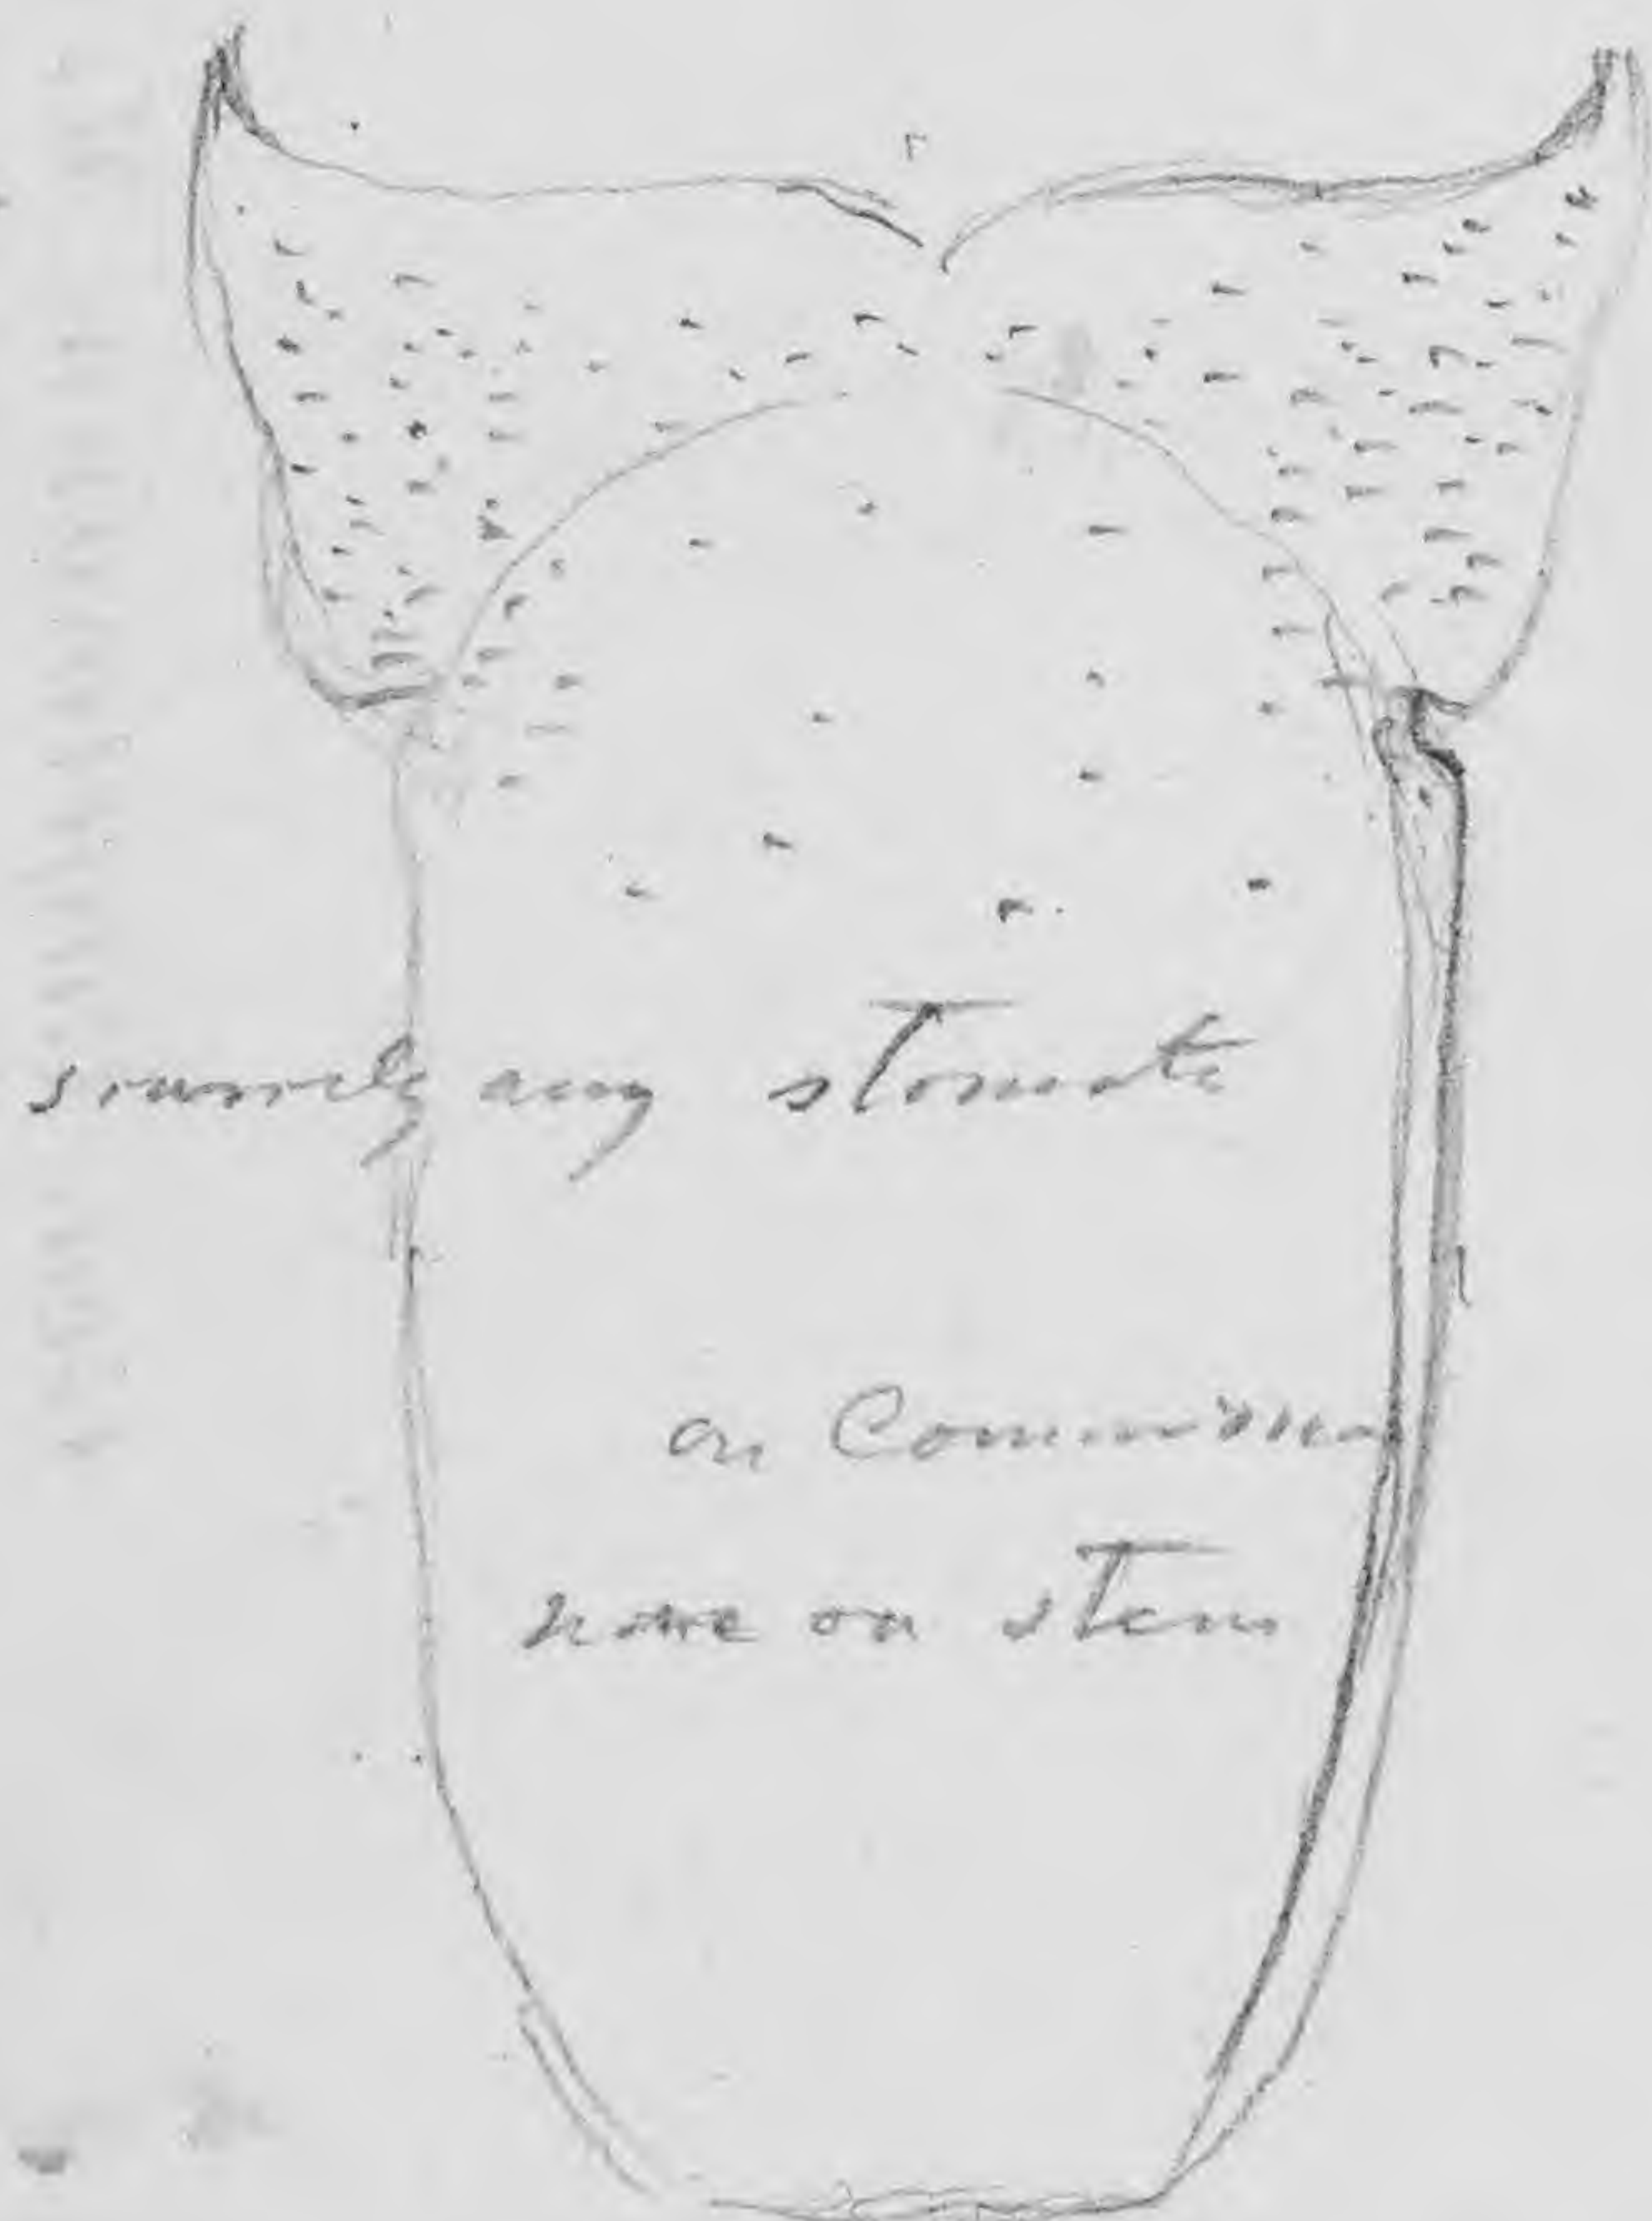 scarcely any stomata
on Commissure
none on stem